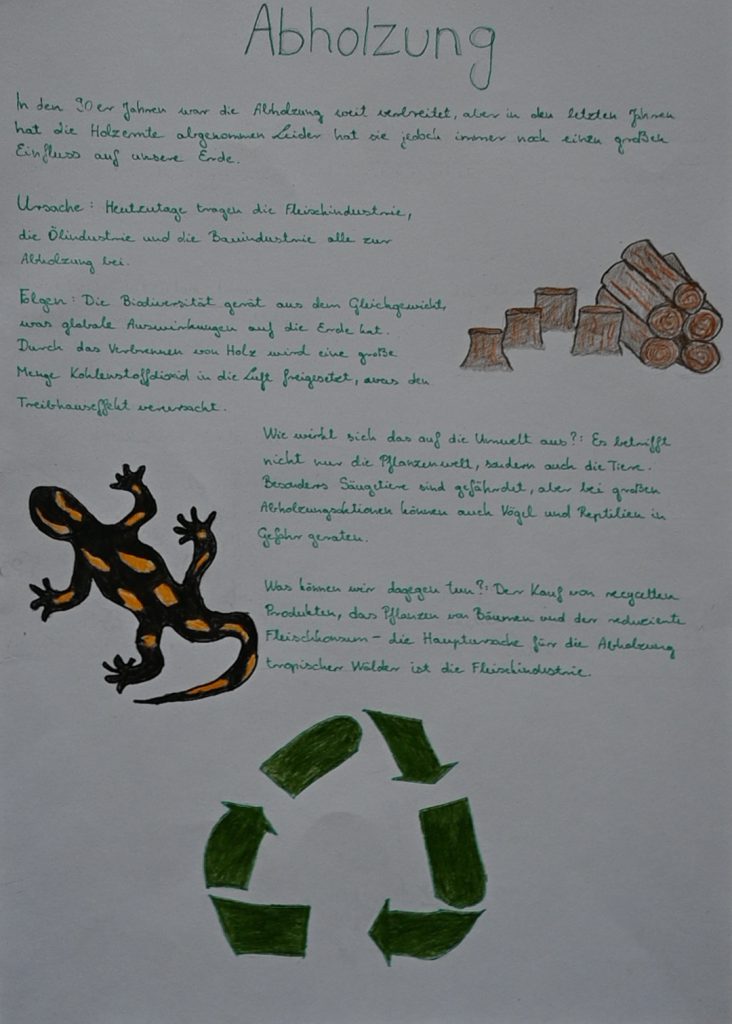 Abholzung
In den 90er Jahren war die Abholzung weit verbreitet, aber in den letzten Jahren
hat die Holzernte abgenommen. Leider hat sie jedoch immer noch einen großen
Einfluss auf unsere Erde.
Ursache: Heutzutage tragen die Fleischindustrie,
die Ölindustrie und die Bauindustrie alle zur
Abholzung bei.
Folgen: Die Biodiversität gerät aus dem Gleichgewicht,
was globale Auswirkungen auf die Erde hat.
Durch das Verbrennen von Holz wird eine große
Menge Kohlenstoffdioxid in die Luft freigesetzt, was den
Treibhauseffekt verursacht.
Wie wirkt sich das auf die Umwelt aus?: Es betrifft
nicht nur die Pflanzenwelt, sondern auch die Tiere.
Besonders Säugetiere sind gefährdet, aber bei großen
Abholzungsaktionen können auch Vögel und Reptilien in
Gefahr geraten.
Was können wir dagegen tun?: Der Kauf von recycelten
Produkten, das Pflanzen von Bäumen und der reduzierte
Fleischkonsum - die Hauptursache für die Abholzung
tropischer Wälder ist die Fleischindustrie.